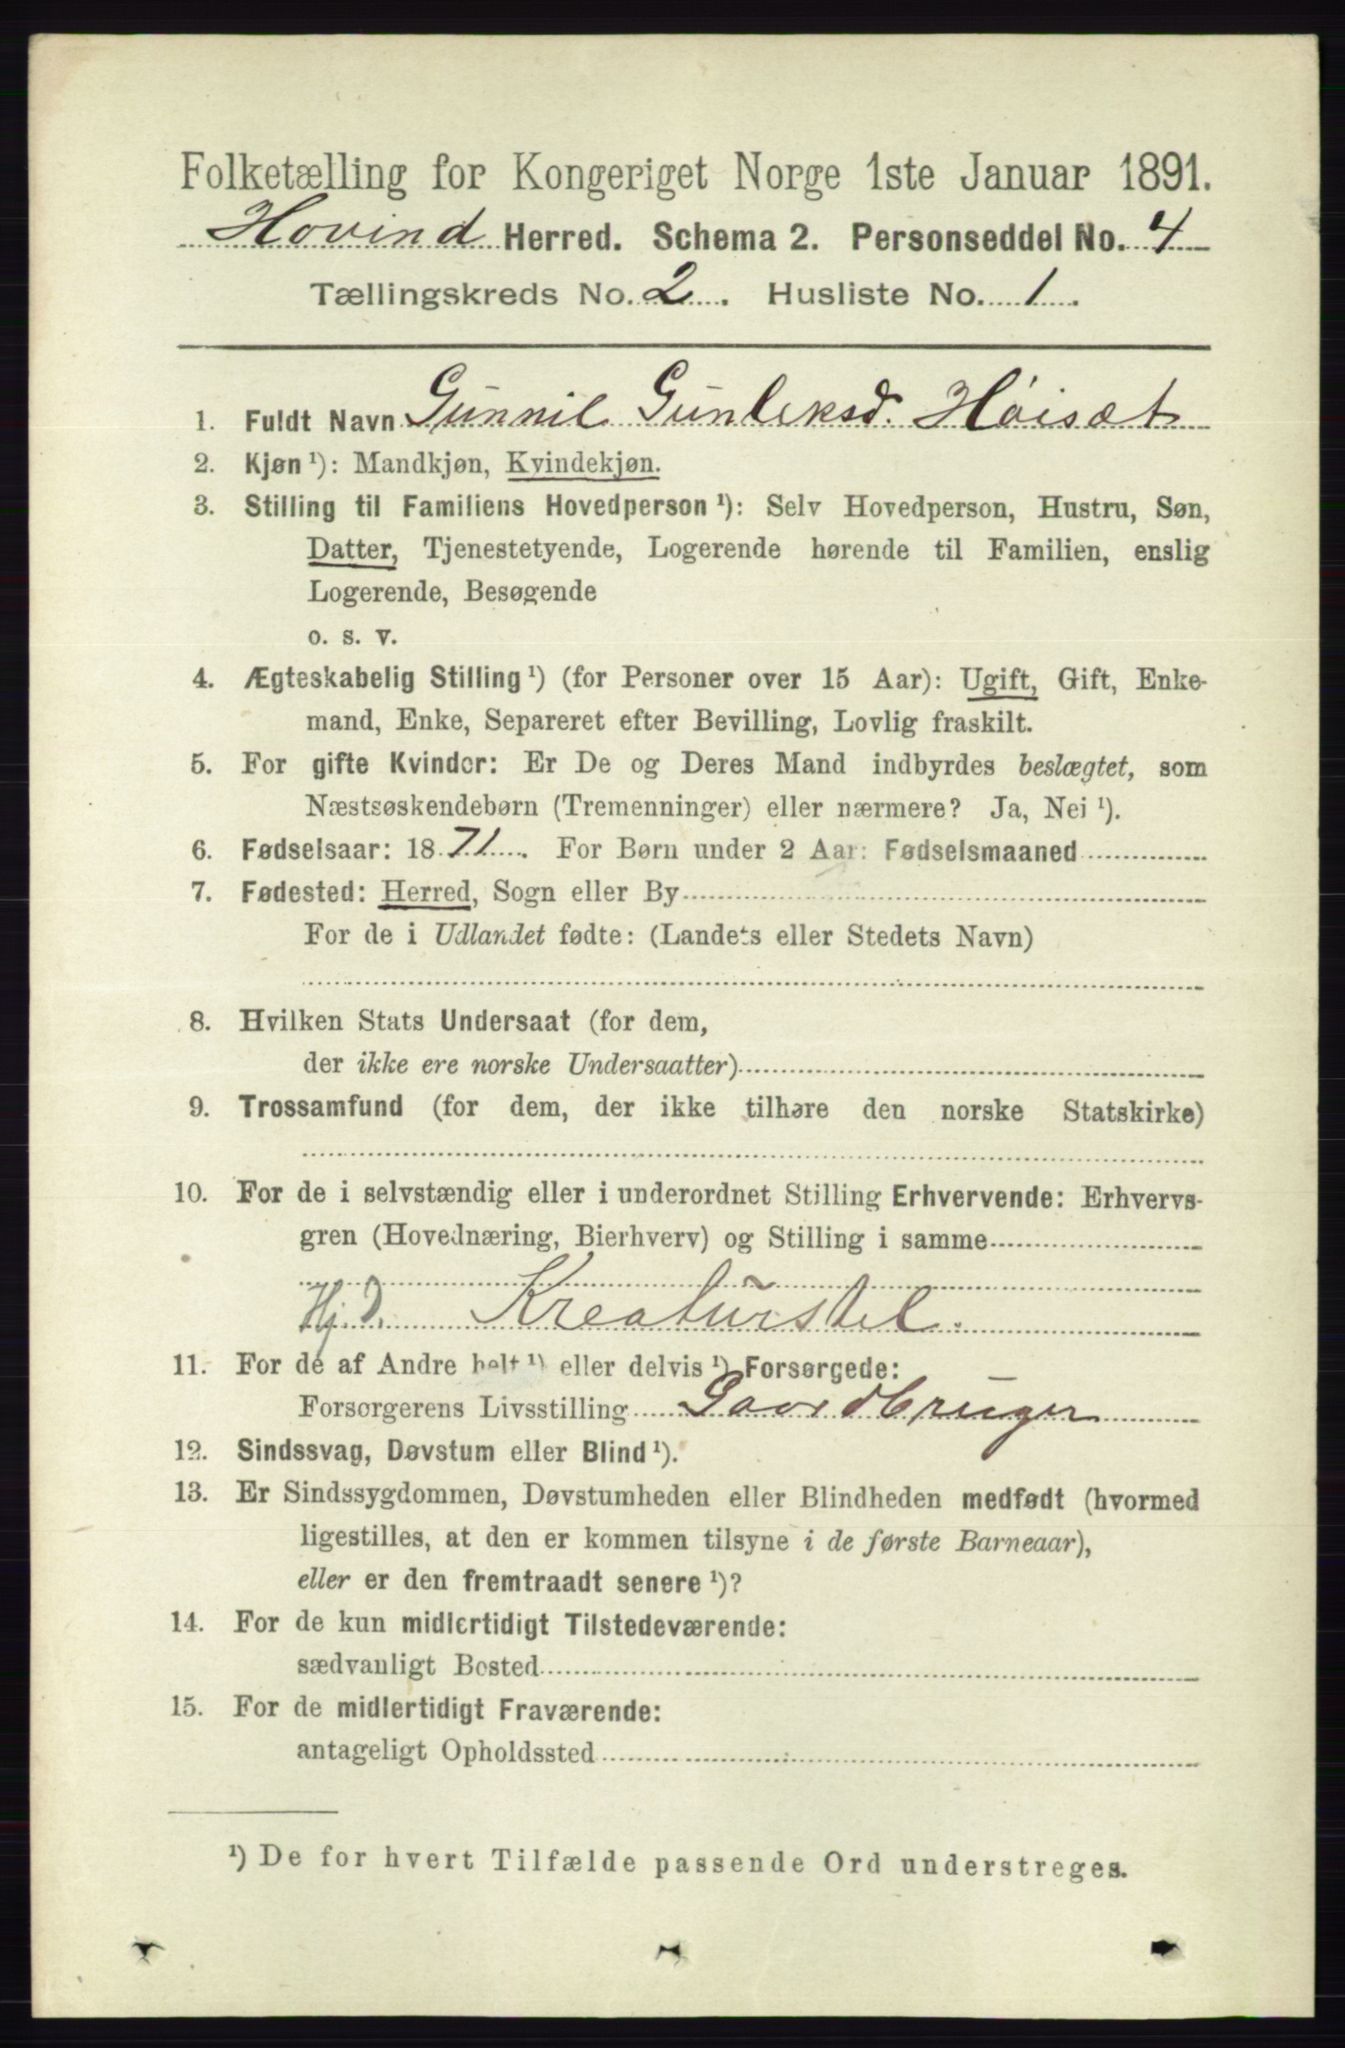 Folketælling for Kongeriget Norge 1ste Januar 1891.
Hovind Herred. Schema 2. Personseddel No. 4
Tællingskreds No. 2. Husliste No. 1.
1. Fuldt Navn Gunnil Gunleksd. Höisæt
2. Kjøn ¹): Mandkjøn, Kvindekjøn.
3. Stilling til Familiens Hovedperson ¹): Selv Hovedperson, Hustru, Søn,
Datter, Tjenestetyende, Logerende hørende til Familien, enslig
Logerende, Besøgende
o. s. v.
4. Ægteskabelig Stilling ¹) (for Personer over 15 Aar): Ugift, Gift, Enke-
mand, Enke, Separeret efter Bevilling, Lovlig fraskilt.
5. For gifte Kvinder: Er De og Deres Mand indbyrdes beslægtet, som
Næstsøskendebørn (Tremenninger) eller nærmere? Ja, Nei ¹).
6. Fødselsaar: 1871. For Børn under 2 Aar: Fødselsmaaned
7. Fødested: Herred, Sogn eller By
For de i Udlandet fødte: (Landets eller Stedets Navn)
8. Hvilken Stats Undersaat (for dem,
der ikke ere norske Undersaatter)
9. Trossamfund (for dem, der ikke tilhøre den norske Statskirke)
10. For de i selvstændig eller i underordnet Stilling Erhvervende: Erhvervs-
gren (Hovednæring, Bierhverv) og Stilling i samme
Hj. D. Kreaturstel.
11. For de af Andre helt ¹) eller delvis ¹) Forsørgede:
Forsørgerens Livsstilling Gaardbruger
12. Sindssvag, Døvstum eller Blind ¹).
13. Er Sindssygdommen, Døvstumheden eller Blindheden medfødt (hvormed
ligestilles, at den er kommen tilsyne i de første Barneaar),
eller er den fremtraadt senere ¹)?
14. For de kun midlertidigt Tilstedeværende:
sædvanligt Bosted
15. For de midlertidigt Fraværende:
antageligt Opholdssted
¹) De for hvert Tilfælde passende Ord understreges.